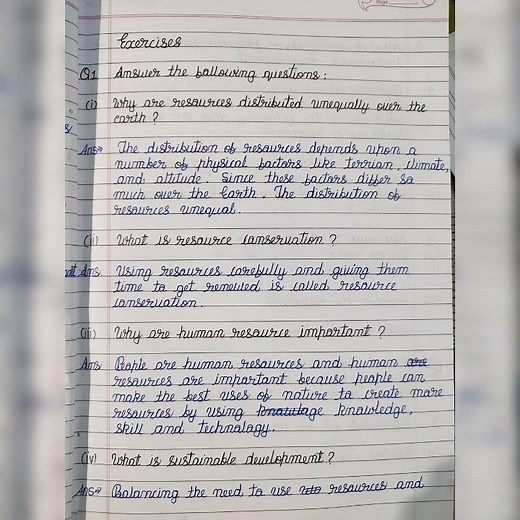 Exercises
Q1 Answer the following questions:
(i) Why are resources distributed unequally over the
earth?
Ans→ The distribution of resources depends upon a
number of physical factors like terrian, climate,
and altitude. Since these factors differ so
much over the Earth. The distribution of
resources unequal.
(ii) What is resource conservation?
Ans Using resources carefully and giving them
time to get renewed is called resource
conservation.
(iii) Why are human resource important?
Ans People are human resources and human are
resources are important because people can
make the best uses of nature to create more
resources by using knowledge,
skill and technology.
(iv) What is sustainable development?
Ans→ Balancing the need to use resources and